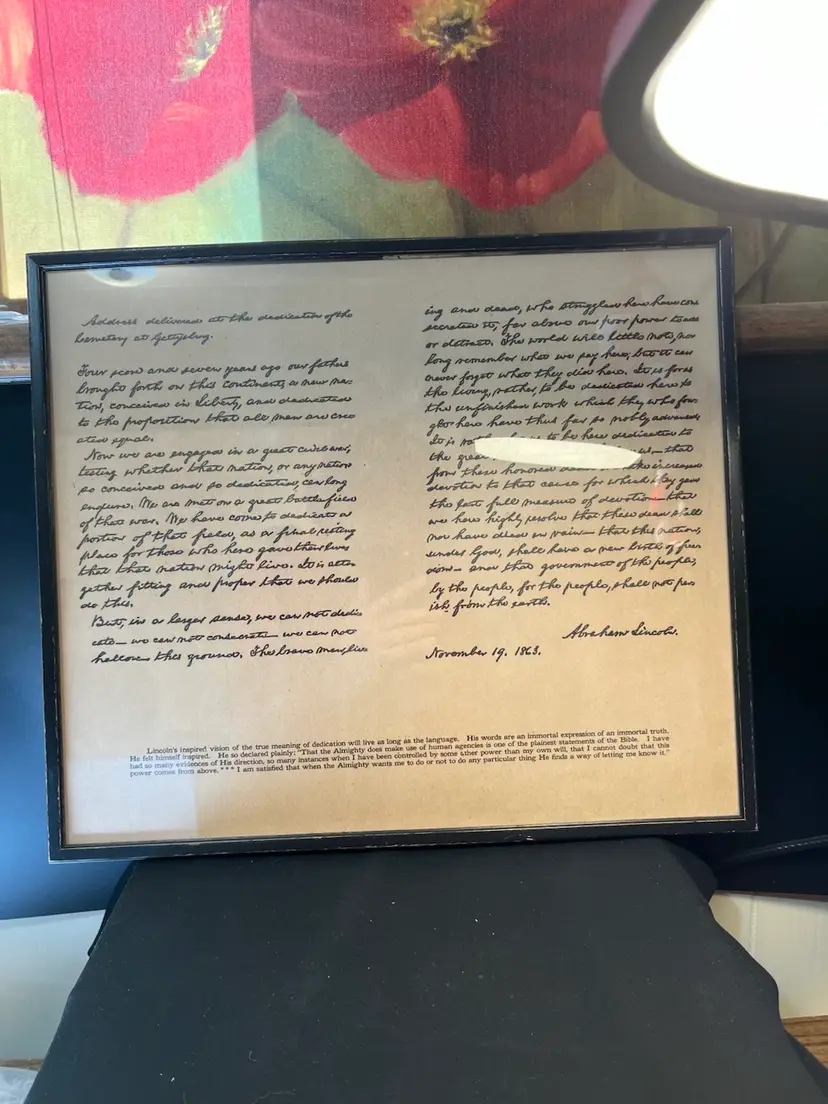 Address delivered at the dedication of the
Cemetery at Gettysburg.
Four score and seven years ago our fathers
brought forth on this continent, a new na-
tion, conceived in Liberty, and dedicated
to the proposition that all men are cre-
ated equal.
Now we are engaged in a great civil war,
testing whether that nation, or any nation
so conceived and so dedicated, can long
endure. We are met on a great battle-field
of that war. We have come to dedicate a
portion of that field, as a final resting
place for those who here gave their lives
that that nation might live. It is alto-
gether fitting and proper that we should
do this.
But, in a larger sense, we can not dedi-
cate— we can not consecrate— we can not
hallow— this ground. The brave men, liv-
ing and dead, who struggled here have con-
secrated it, far above our poor power to add
or detract. The world will little note, nor
long remember what we say here, but it can
never forget what they did here. It is for us
the living, rather, to be dedicated here to
the unfinished work which they who fou-
ght here have thus far so nobly advanced.
It is to be here dedicated to
the great us— that
from these honored dead increased
devotion to that cause for which they gave
the last full measure of devotion— that
we here highly resolve that these dead shall
not have died in vain— that this nation,
under God, shall have a new birth of free-
dom— and that government of the people,
by the people, for the people, shall not per-
ish from the earth.
Abraham Lincoln.
November 19. 1863.
Lincoln's inspired vision of the true meaning of dedication will live as long as the language. His words are an immortal expression of an immortal truth.
He felt himself inspired. He so declared plainly: "That the Almighty does make use of human agencies is one of the plainest statements of the Bible. I have
had so many evidences of His direction, so many instances when I have been controlled by some other power than my own will, that I cannot doubt that this
power comes from above. * * * I am satisfied that when the Almighty wants me to do or not to do any particular thing He finds a way of letting me know it."